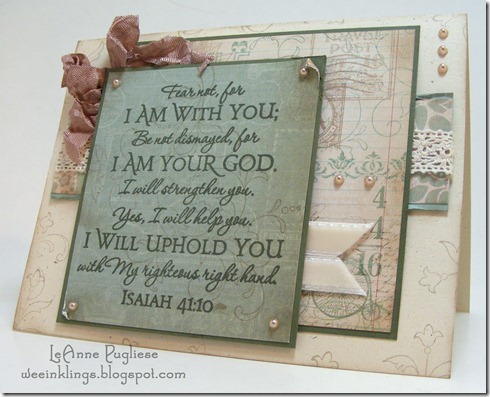 Fear not, for
I AM WITH YOU;
Be not dismayed, for
I AM YOUR GOD.
I will strengthen you.
Yes, I will help you.
I WILL UPHOLD YOU
with My righteous right hand.
ISAIAH 41:10
POST
4
4
16
LeAnne Pugliese
weeinklings.blogspot.com